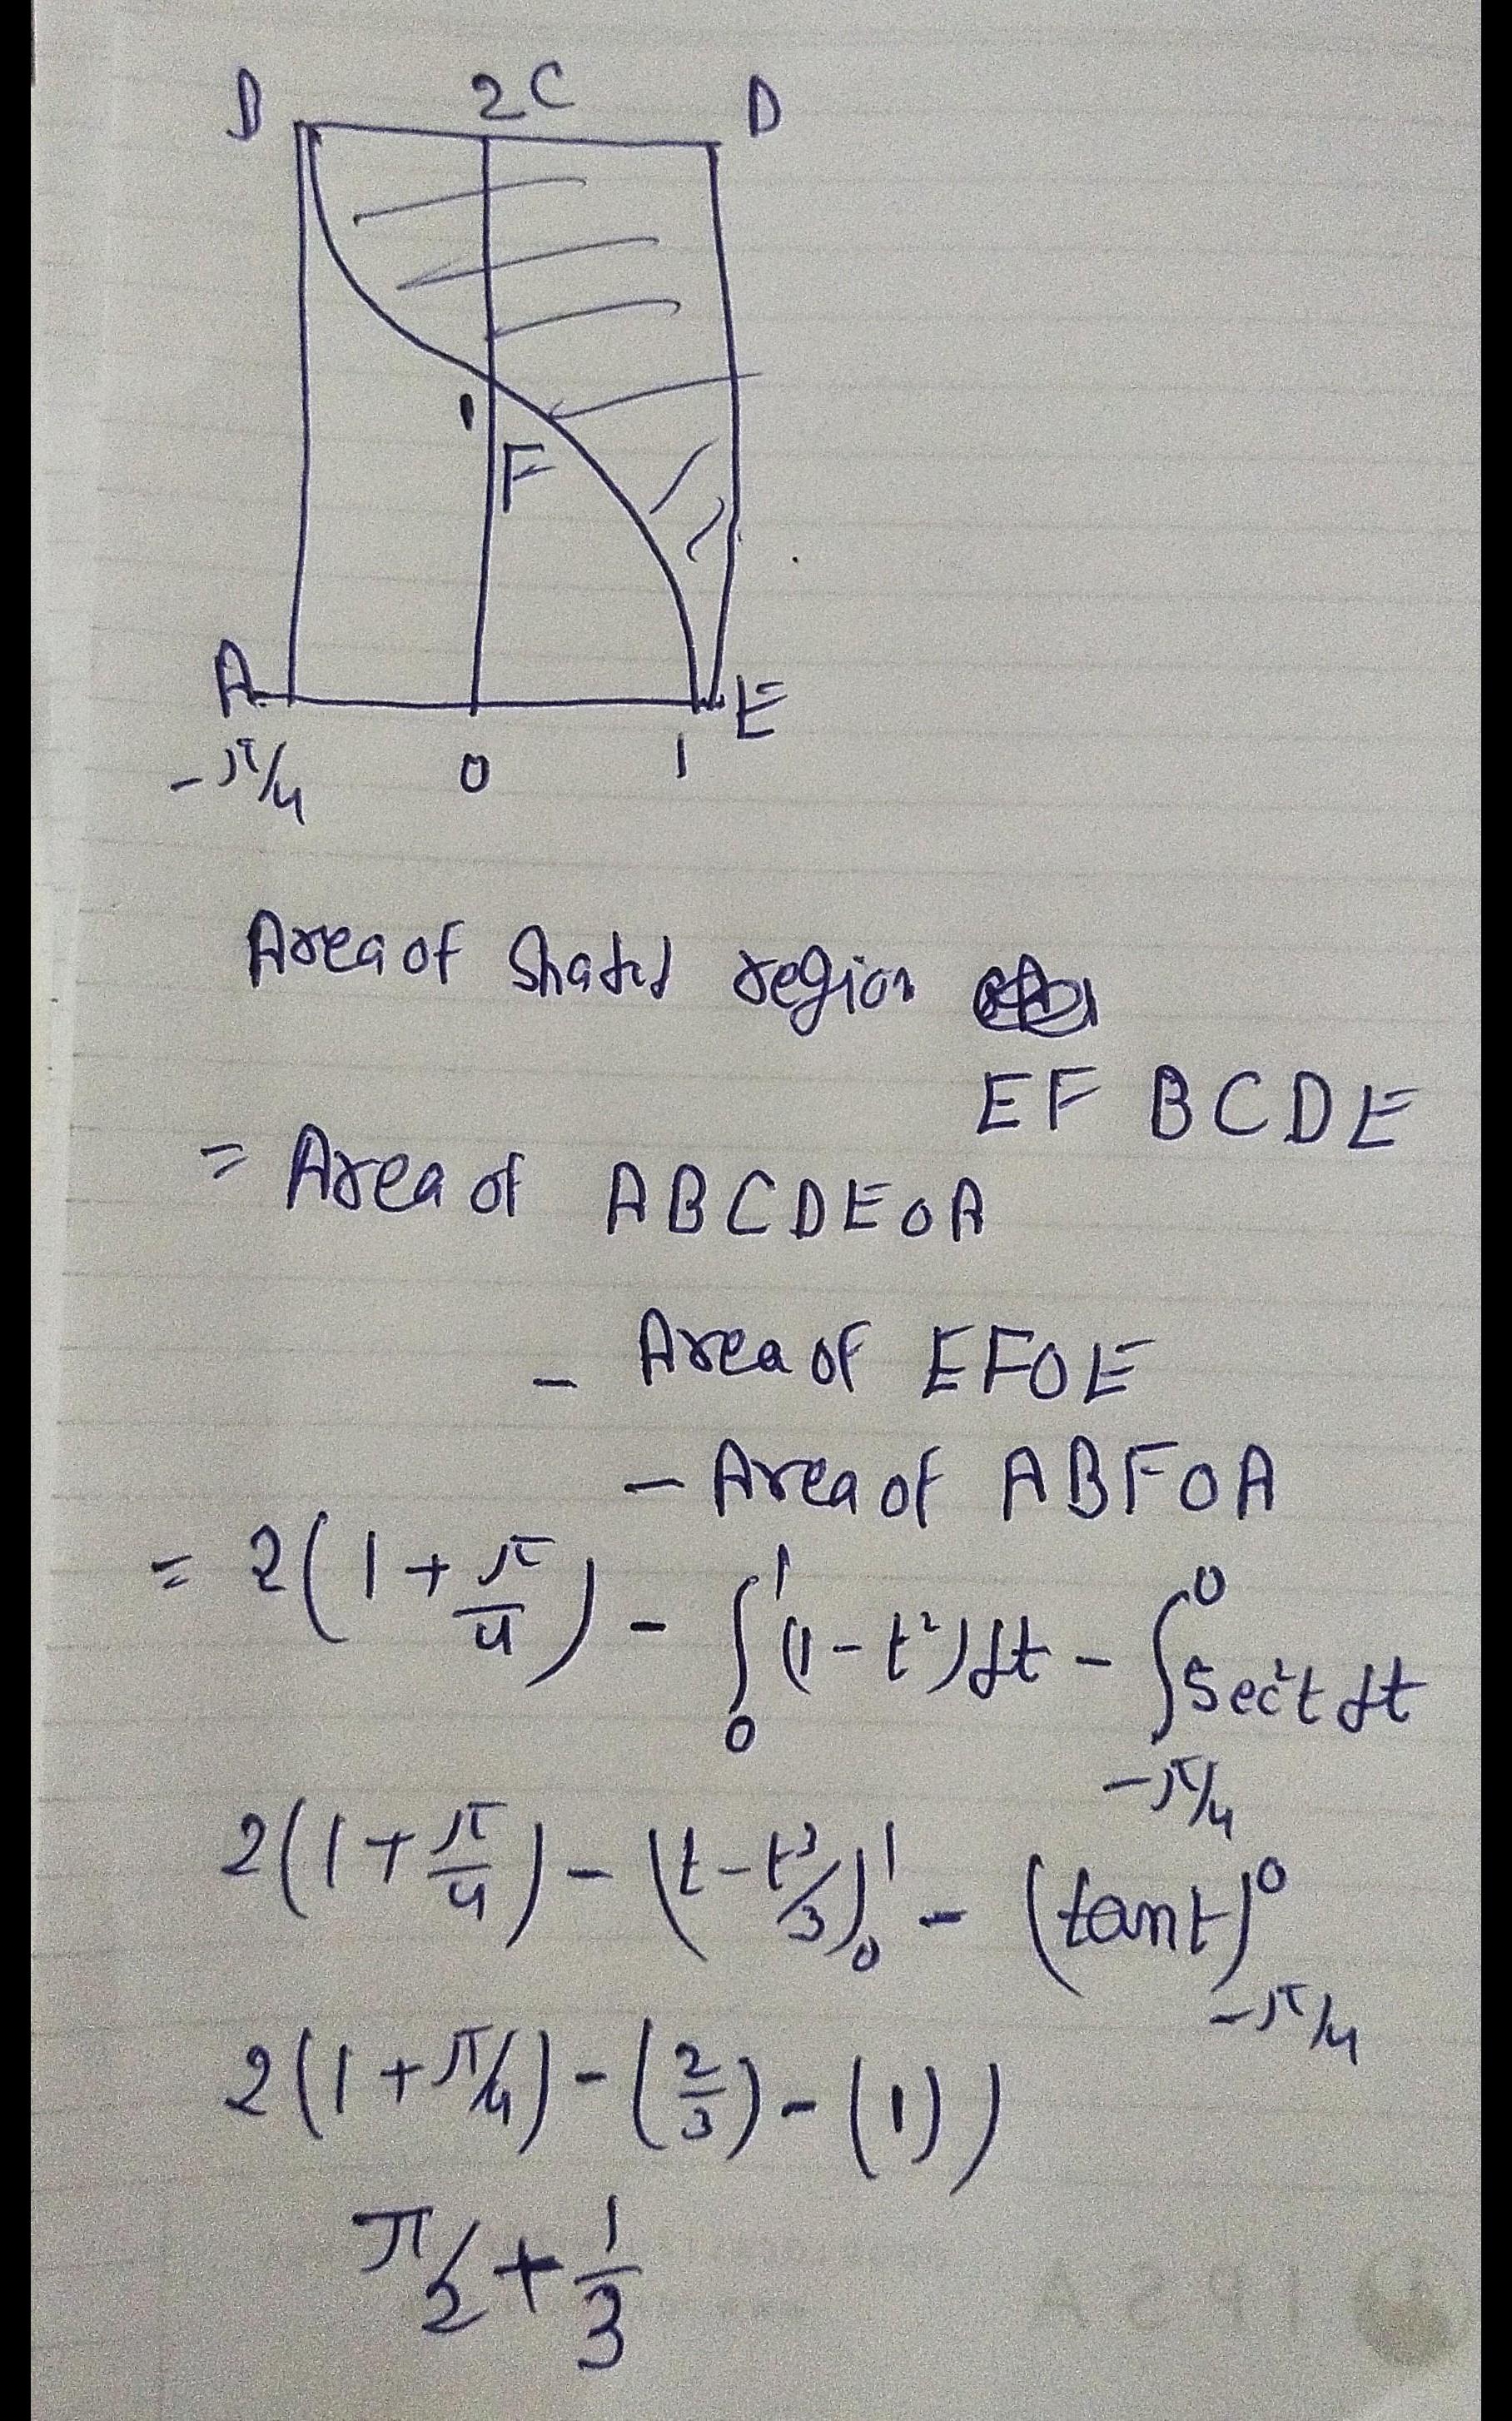 B 2 C D
1
F
A E
-π/4 0 1
Area of Shated region
EF BCDE
= Area of ABCDEOA
- Area of EFOE
- Area of ABFOA
= 2(1+π/4) - ∫₀¹(1-t²)dt - ∫₋π/₄⁰ Sec²t dt
2(1+π/4) - (t-t³/3)₀¹ - (tant)⁰₋π/₄
2(1+π/4) - (2/3) - (1))
π/2 + 1/3